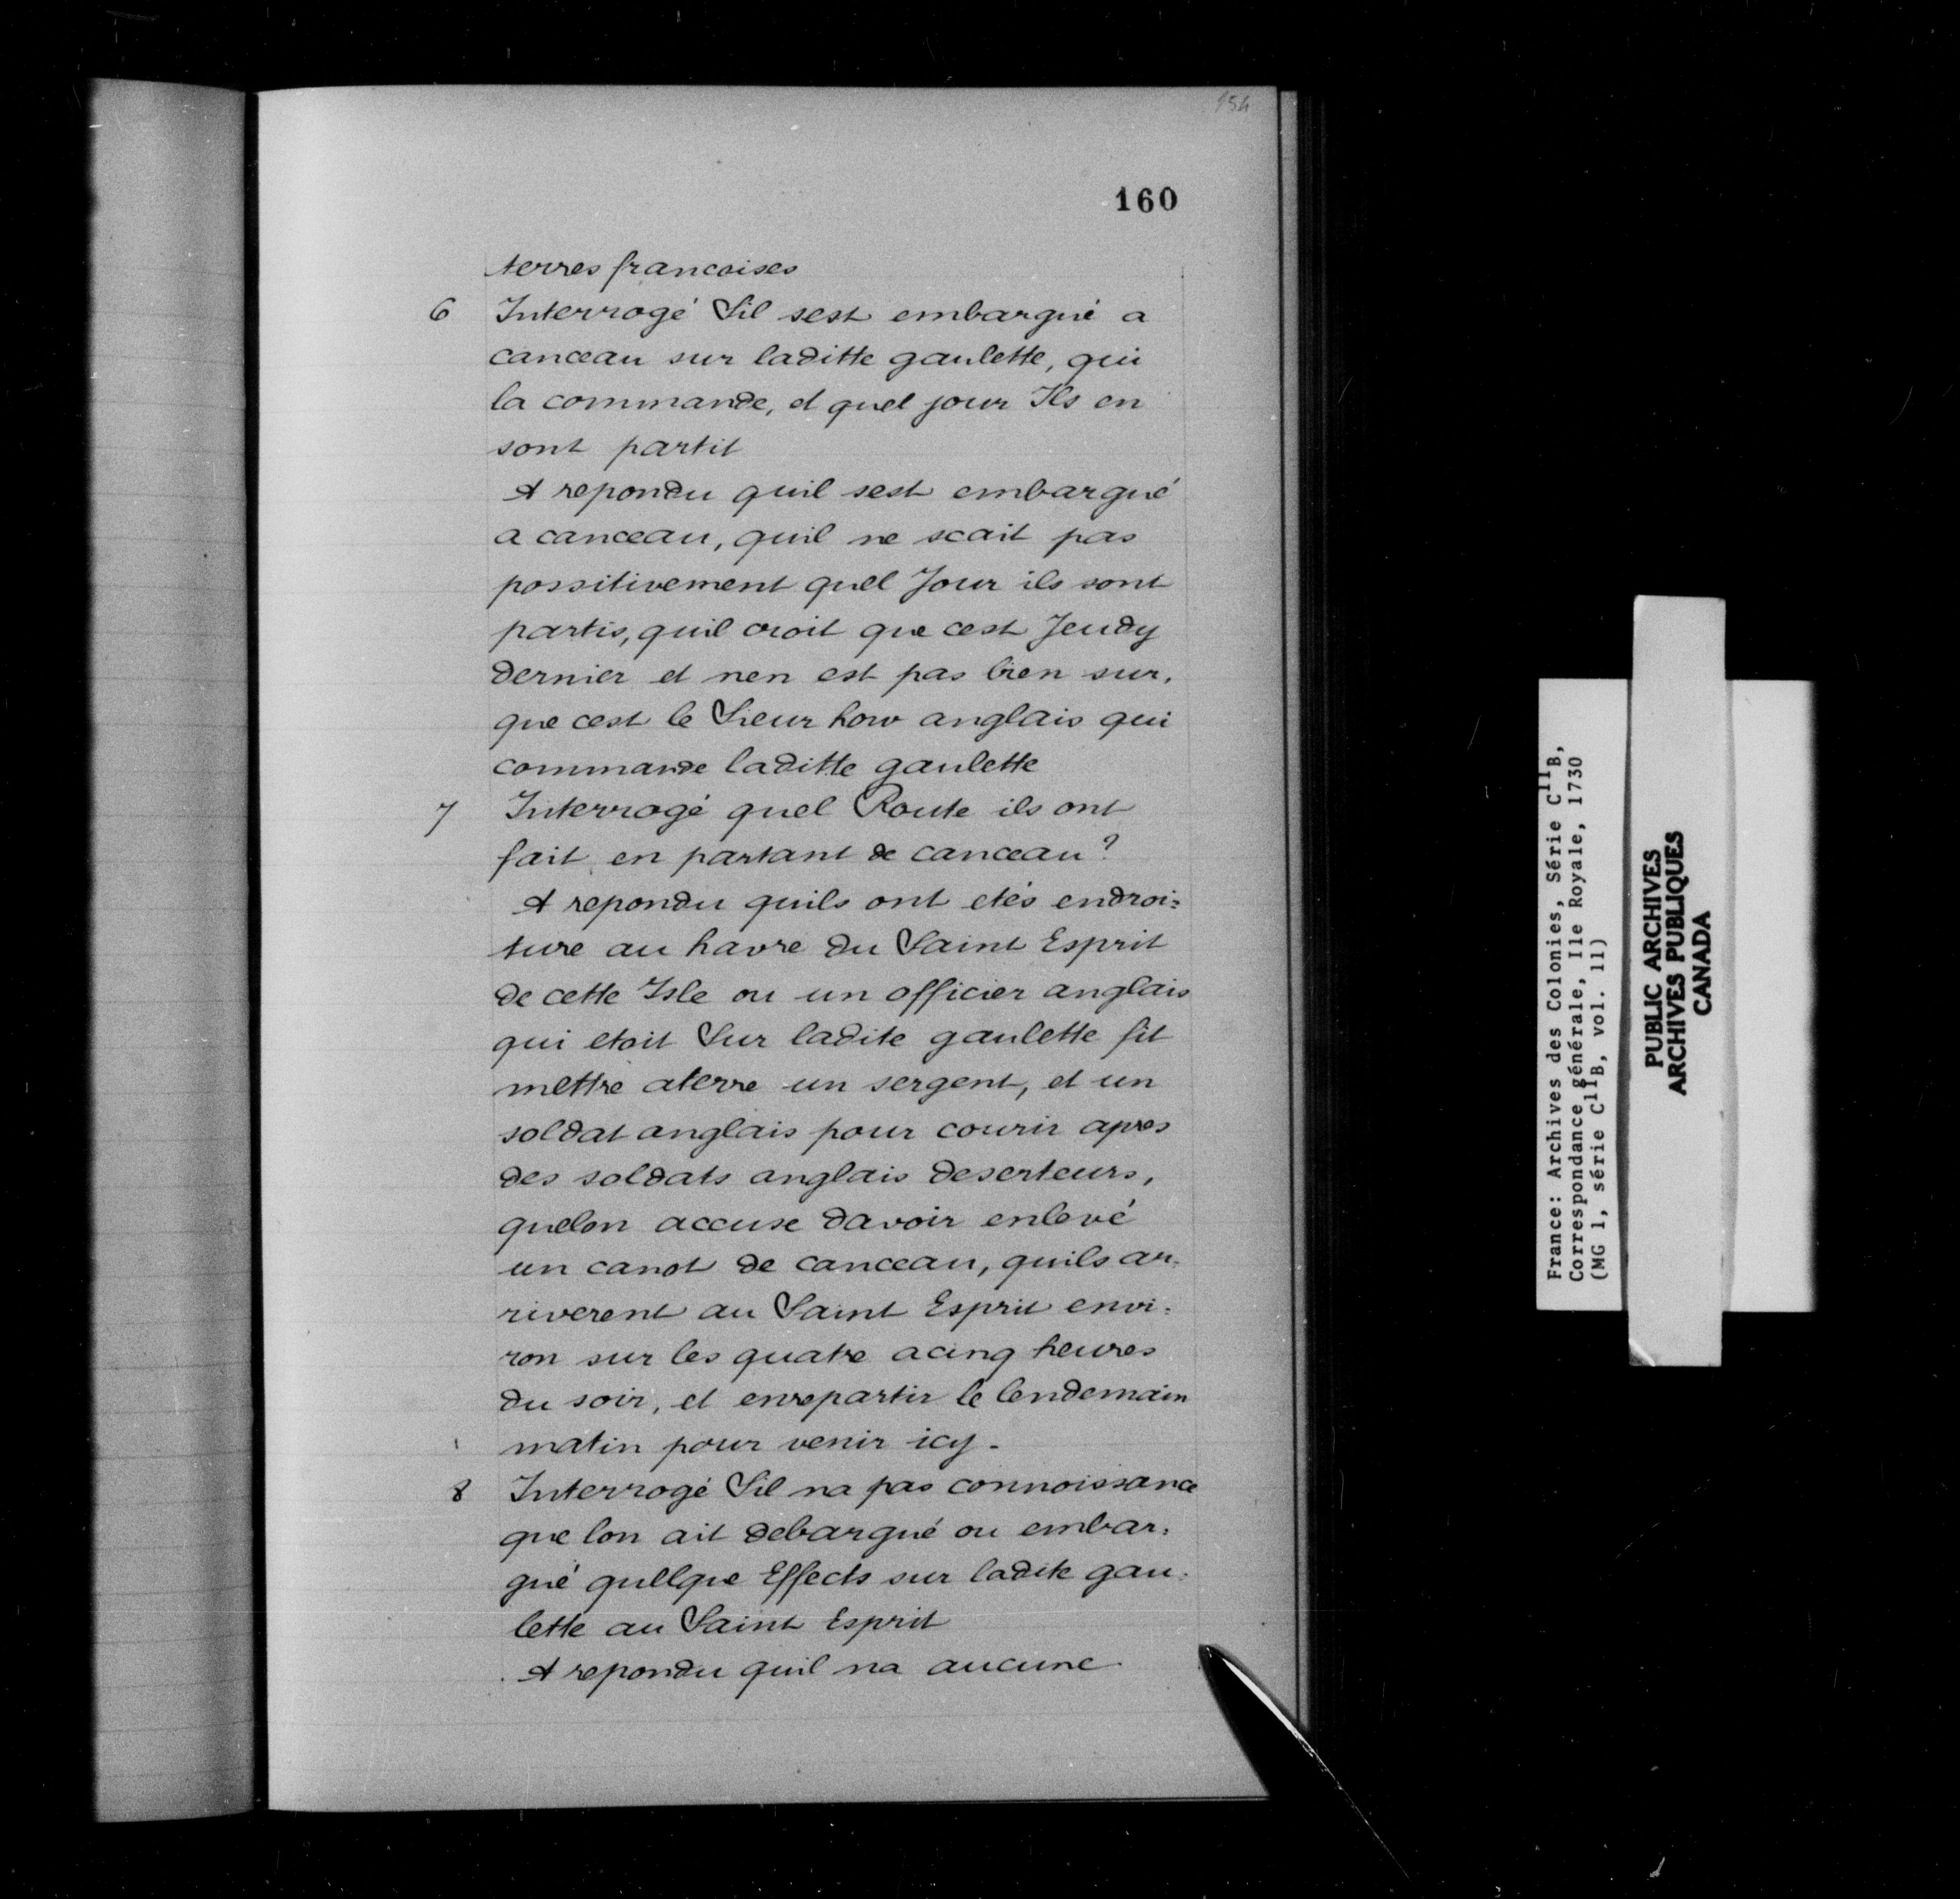 154
160
terres francaises
6 Interrogé Sil sest embarqué a
canceau sur laditte gaulette, qui
la commande, et quel jour Ils en
sont partit
A repondu quil sest embarqué
a canceau, quil ne scait pas
possitivement quel Jour ils sont
partis, quil croit que cest Jeudy
dernier et nen est pas bien sur,
que cest le Sieur how anglais qui
commande laditte gaulette
7 Interrogé quel Route ils ont
fait en partant de canceau?
A repondu quils ont etés endroi=
ture au havre du Saint Esprit
de cette Isle ou un officier anglais
qui etoit Sur ladite gaulette fit
mettre aterre un sergent, et un
soldat anglais pour courir apres
des soldats anglais deserteurs,
quelon accuse davoir enlevé
un canot de canceau, quils ar=
riverent au Saint Esprit envi=
ron sur les quatre acinq heures
du soir, et enrepartir le lendemain
matin pour venir icy.
8 Interrogé Sil na pas connoissance
que lon ait debarqué ou embar=
qué quelque Effects sur ladite gau=
lette au Saint Esprit
A repondu quil na aucune
France: Archives des Colonies, Série C11B,
Correspondance générale, Ile Royale, 1730
(MG 1, série C11B, vol. 11)
PUBLIC ARCHIVES
ARCHIVES PUBLIQUES
CANADA